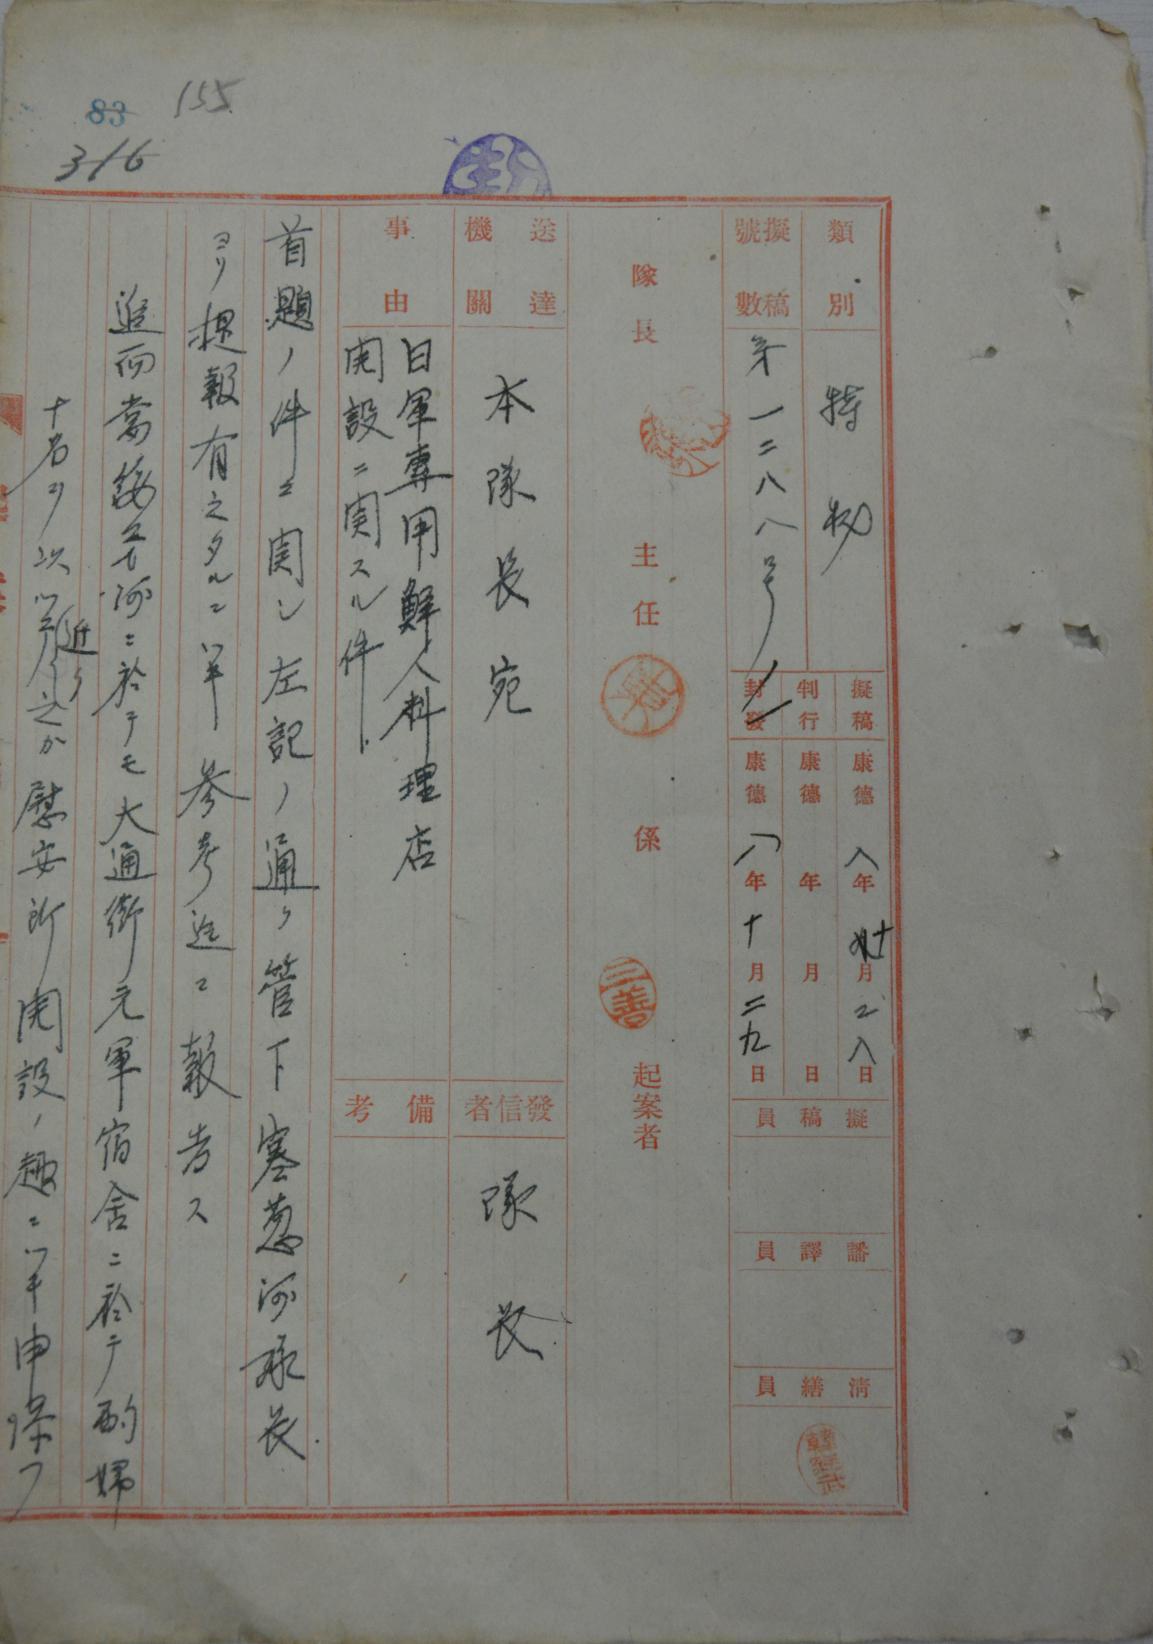 155
83
316
類別
特秘
擬稿號數
第一二八八号
擬稿 康德八年十月二八日
判行 康德 年 月 日
封發 康德八年十月二九日
擬稿員
譯員
清繕員
隊長 主任 係 起案者
三善
送達機關
本隊長宛
發信者
隊長
事由
日軍專用鮮人料理店
開設ニ関スル件
備考
首題ノ件ニ関シ左記ノ通リ管下寒葱河隊長
ヨリ提報有之タルニ付参考迄ニ報告ス
追而當綏芬河ニ於テモ大通街元軍宿舍ニ於テ酌婦
十名ヲ以ツテ近ク之カ慰安所開設ノ趣ニツキ申添フ